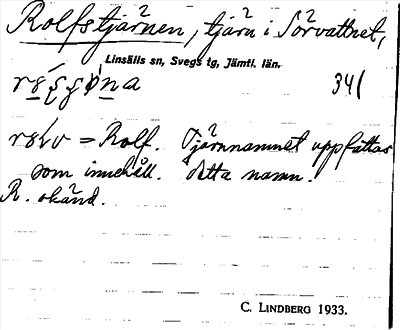 Rolfstjärnen, tjärn i Särvattnet,
Linsälls sn, Svegs tg, Jämtl. län.
341
= Rolf. Tjärnnamnet uppfattas
som innehåll. detta namn.
R. okänd.
C. LINDBERG 1933.